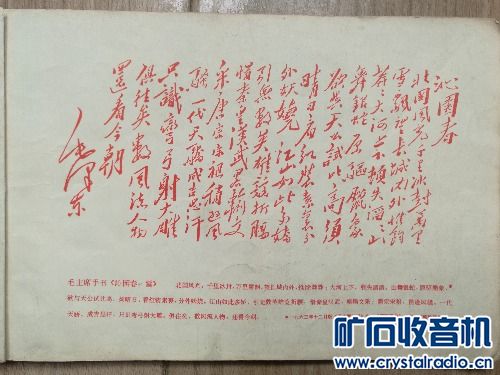 沁園春
北國風光千里冰封萬里
雪飄望長城内外惟餘
莽莽大河上下頓失滔滔山
舞銀蛇原驅臘象
欲與天公試比高須
晴日看紅裝素裹分
外妖嬈 江山如此多嬌
引無數英雄競折腰
惜秦皇漢武略輸文
采唐宗宋祖稍遜風
騷一代天驕成吉思汗
只識彎弓射大雕
俱往矣數風流人物
還看今朝
毛澤東
毛主席手书《沁园春·雪》 北国风光，千里冰封，万里雪飘。望长城内外，惟余莽莽；大河上下，顿失滔滔。山舞银蛇，原驰蜡象，
欲与天公试比高。须晴日，看红装素裹，分外妖娆。江山如此多娇，引无数英雄竞折腰。惜秦皇汉武，略输文采；唐宗宋祖，稍逊风骚。一代
天骄，成吉思汗，只识弯弓射大雕。俱往矣，数风流人物，还看今朝。
矿石收音机
www.crystalradio.cn